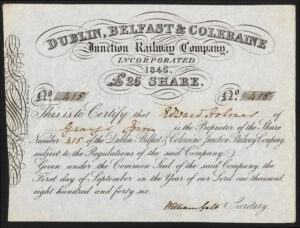 DUBLIN, BELFAST & COLERAINE
Junction Railway Company,
INCORPORATED
1846.
£25 SHARE.
No. 415 No. 415
This is to Certify that Edward Holmes of
Gray's Inn is the Proprietor of the Share
Number 415 of the Dublin, Belfast & Coleraine Junction Railway Company,
subject to the Regulations of the said Company.
Given under the Common Seal of the said Company, the
First day of September in the Year of our Lord one thousand
eight hundred and forty six.
William Galt Secretary.